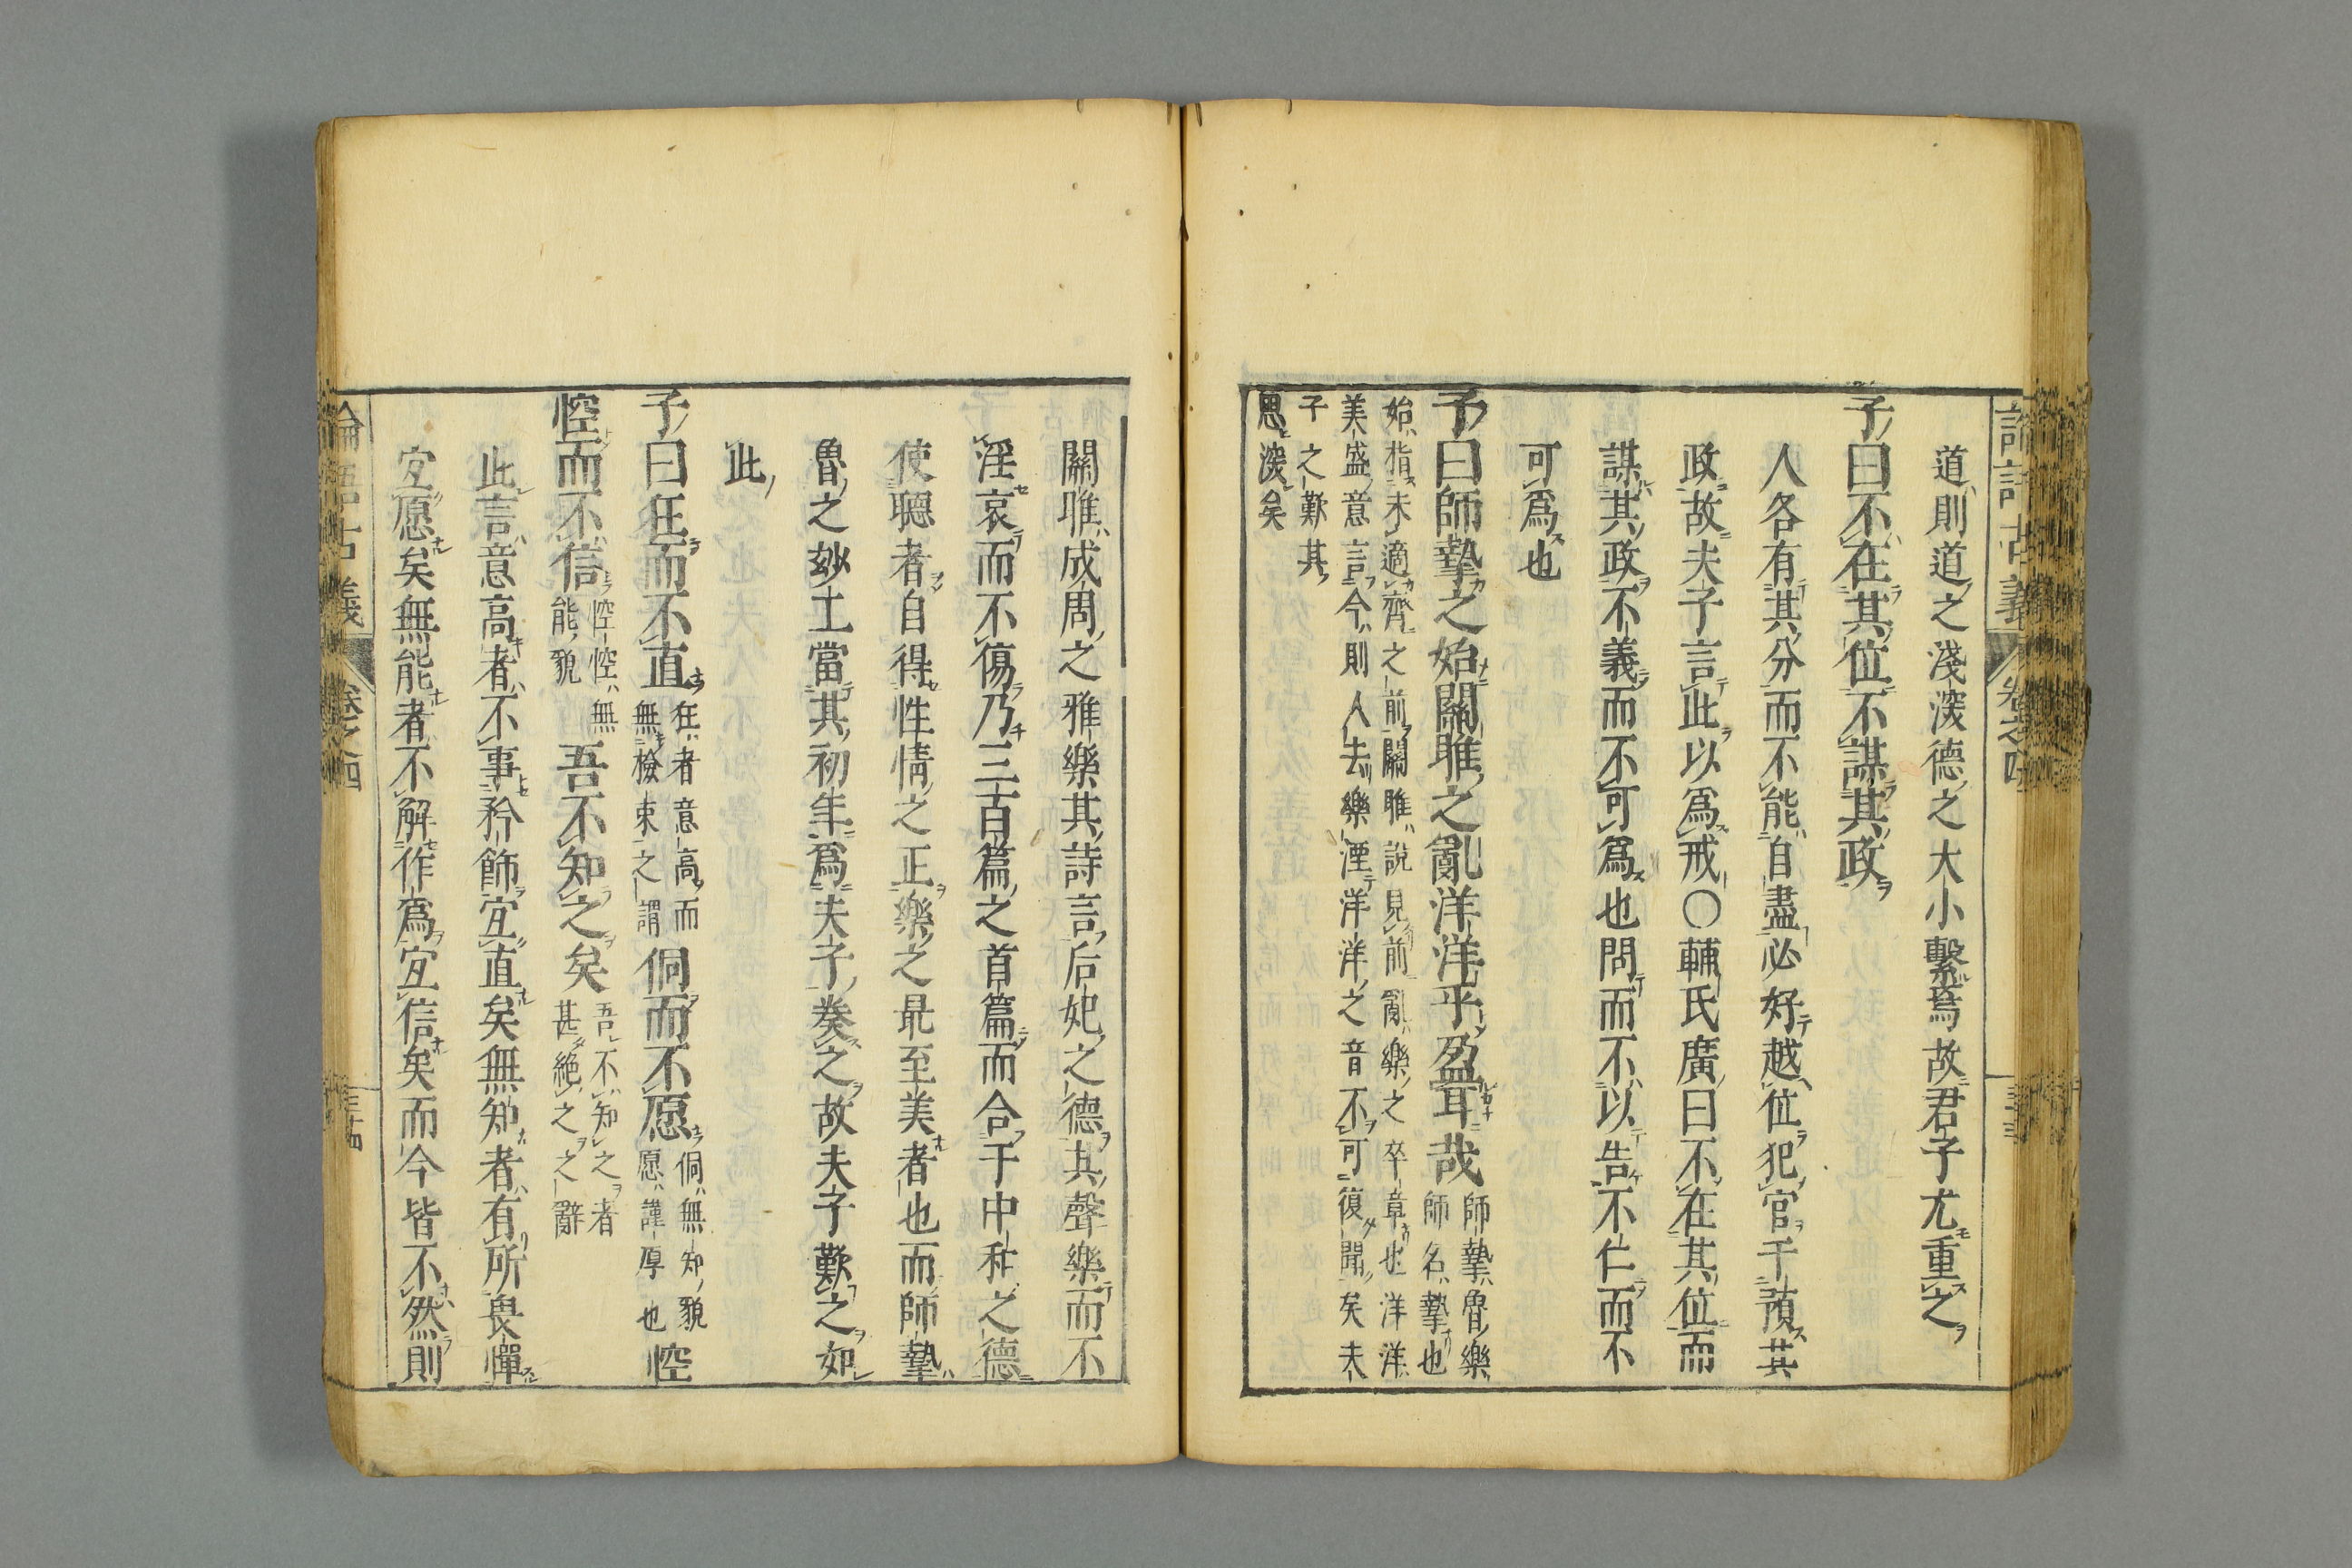 道則道之淺深德之大小繫焉故君子尤重之
子曰不在其位不謀其政
人各有其分而不能自盡必好越位犯官干預其
政故夫子言此以爲戒〇輔氏廣曰不在其位而
謀其政不義而不可爲也問而不以告不仁而不
可爲也
子曰師摯之始關雎之亂洋洋乎盈耳哉
師摯魯樂
師名摯也
始指未適齊之前關雎說見前亂樂之卒章也洋洋
美盛意言今則人去樂湮洋洋之音不可復聞矣夫
子之歎其
思深矣
關雎成周之雅樂其詩言后妃之德其聲樂而不
淫哀而不傷乃三百篇之首篇而合于中和之德
使聽者自得性情之正樂之最至美者也而師摯
魯之妙工當其初年爲夫子奏之故夫子歎之如
此
子曰狂而不直
狂者意高而
無檢束之謂
侗而不愿
侗無知貌
愿謹厚也
悾
悾而不信
悾悾無
能貌
吾不知之矣
吾不知之者
甚絕之之辭
此言意高者不事矜飾宜直矣無知者有所畏憚
宜愿矣無能者不解作爲宜信矣而今皆不然則
論語古義
卷之四
三十四